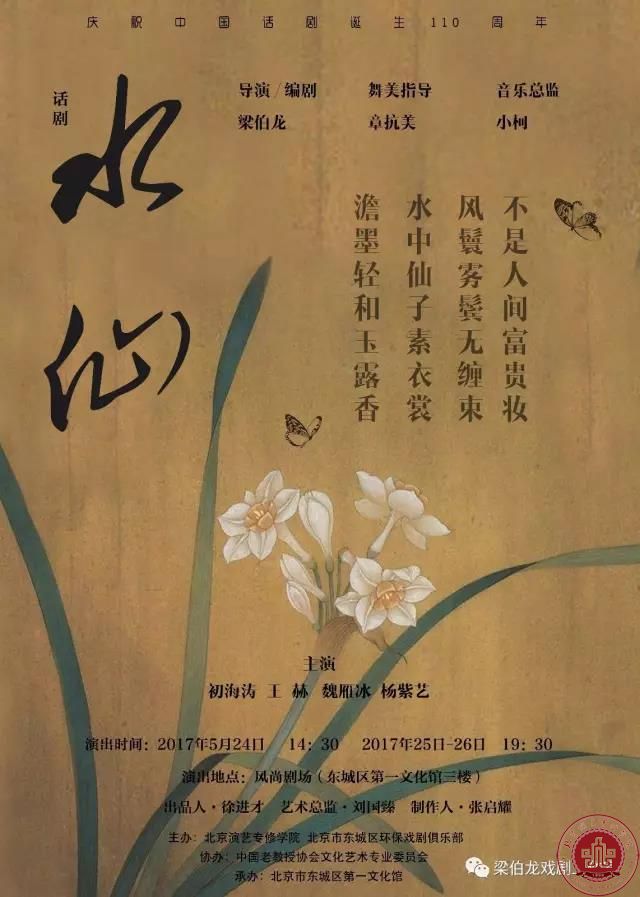 庆祝中国话剧诞生110周年
话剧
水仙
导演/编剧 舞美指导 音乐总监
梁伯龙 章抗美 小柯
不是人间富贵妆
风鬟雾鬓无缠束
水中仙子素衣裳
澹墨轻和玉露香
主演
初海涛 王 赫 魏雁冰 杨紫艺
演出时间：2017年5月24日 14：30 2017年25日-26日 19：30
演出地点：风尚剧场（东城区第一文化馆三楼）
出品人·徐进才 艺术总监·刘国臻 制作人·张启耀
主办：北京演艺专修学院 北京市东城区环保戏剧俱乐部
协办：中国老教授协会文化艺术专业委员会
承办：北京市东城区第一文化馆
梁伯龙戏剧